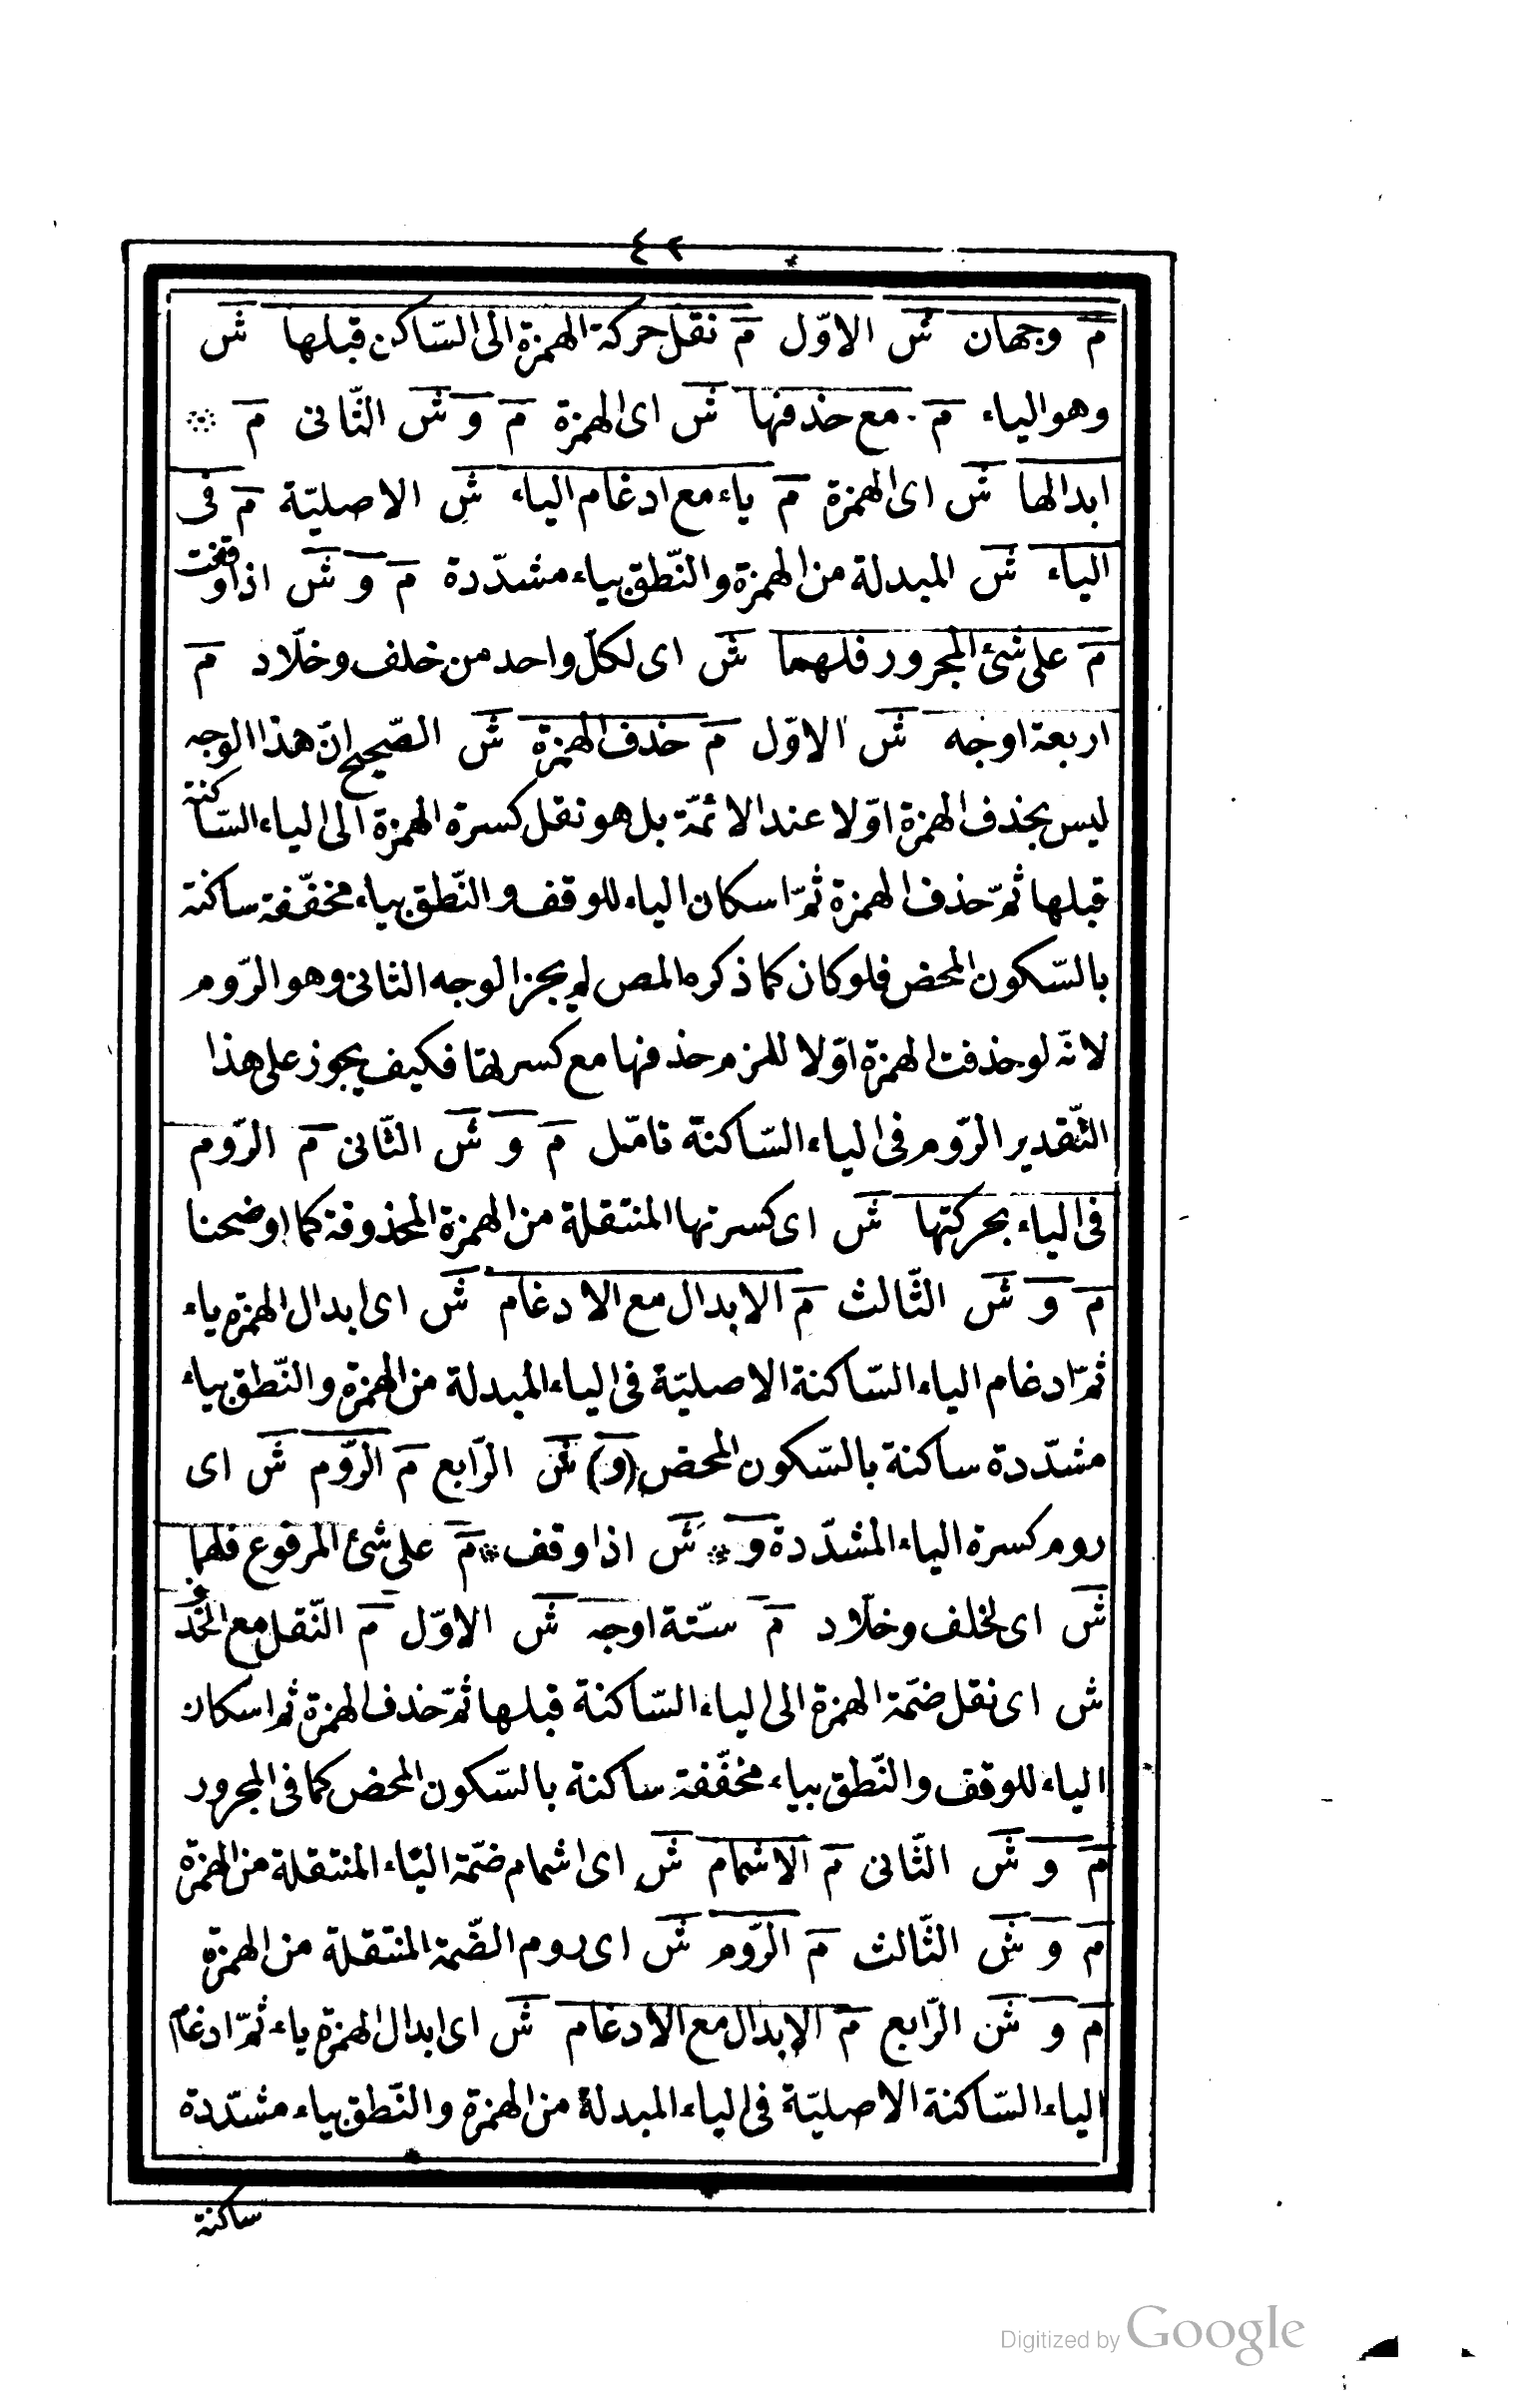 ٤٢
م وجهان ش الاوّل م نقل حركة الهمزة الى السّاكن قبلها ش
وهو الياء م مع حذفها ش اى الهمزة م و ش الثّانى م
ابدالها ش اى الهمزة م ياء مع ادغام الياء ش الاصليّة م فى
الياء ش المبدلة من الهمزة والنّطق بياء مشدّدة م و ش اذا وقفت
م على شئ المجرور فلهما ش اى لكلّ واحد من خلف وخلّاد م
اربعة اوجه ش الاوّل م حذف الهمزة ش الصّحيح انّ هذا الوجه
ليس بحذف الهمزة اوّلا عند الائمّة بل هو نقل كسرة الهمزة الى الياء السّاكنة
قبلها ثمّ حذف الهمزة ثمّ اسكان الياء للوقف والنّطق بياء مخفّفة ساكنة
بالسّكون المحض فلو كان كما ذكره المص لم يجز الوجه الثانى وهو الرّوم
لانّه لو حذفت الهمزة اوّلا للزم حذفها مع كسرتها فكيف يجوز على هذا
التّقدير الرّوم فى الياء السّاكنة تامّل م و ش الثّانى م الرّوم
فى الياء بحركتها ش اى كسرتها المنتقلة من الهمزة المحذوفة كما اوضحنا
م و ش الثّالث م الابدال مع الادغام ش اى ابدال الهمزة ياء
ثمّ ادغام الياء السّاكنة الاصليّة فى الياء المبدلة من الهمزة والنّطق بياء
مشدّدة ساكنة بالسّكون المحض (و) ش الرّابع م الرّوم ش اى
روم كسرة الياء المشدّدة و ش اذا وقف م على شئ المرفوع فلهما
ش اى لخلف وخلّاد م ستّة اوجه ش الاوّل م النّقل مع الحذف
ش اى نقل ضمّة الهمزة الى الياء السّاكنة قبلها ثمّ حذف الهمزة ثم اسكان
الياء للوقف والنّطق بياء مخفّفة ساكنة بالسّكون المحض كما فى المجرور
م و ش الثّانى م الاشمام ش اى اشمام ضمّة الياء المنتقلة من الهمزة
م و ش الثّالث م الرّوم ش اى روم الضّمة المنتقلة من الهمزة
م و ش الرّابع م الابدال مع الادغام ش اى ابدال الهمزة ياء ثمّ ادغام
الياء السّاكنة الاصليّة فى الياء المبدلة من الهمزة والنّطق بياء مشدّدة
ساكنة
Digitized by Google